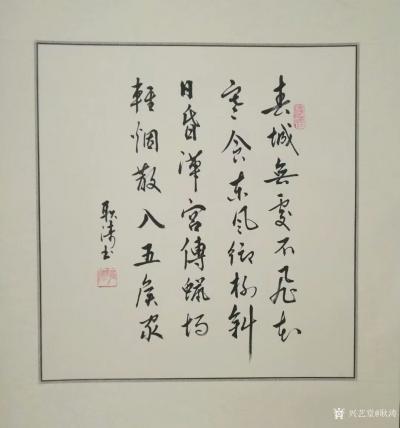 春城無處不飛花
寒食东风御柳斜
日昏漢宮傳蠟烛
輕烟散入五侯家
耿涛书
兴艺堂@耿涛